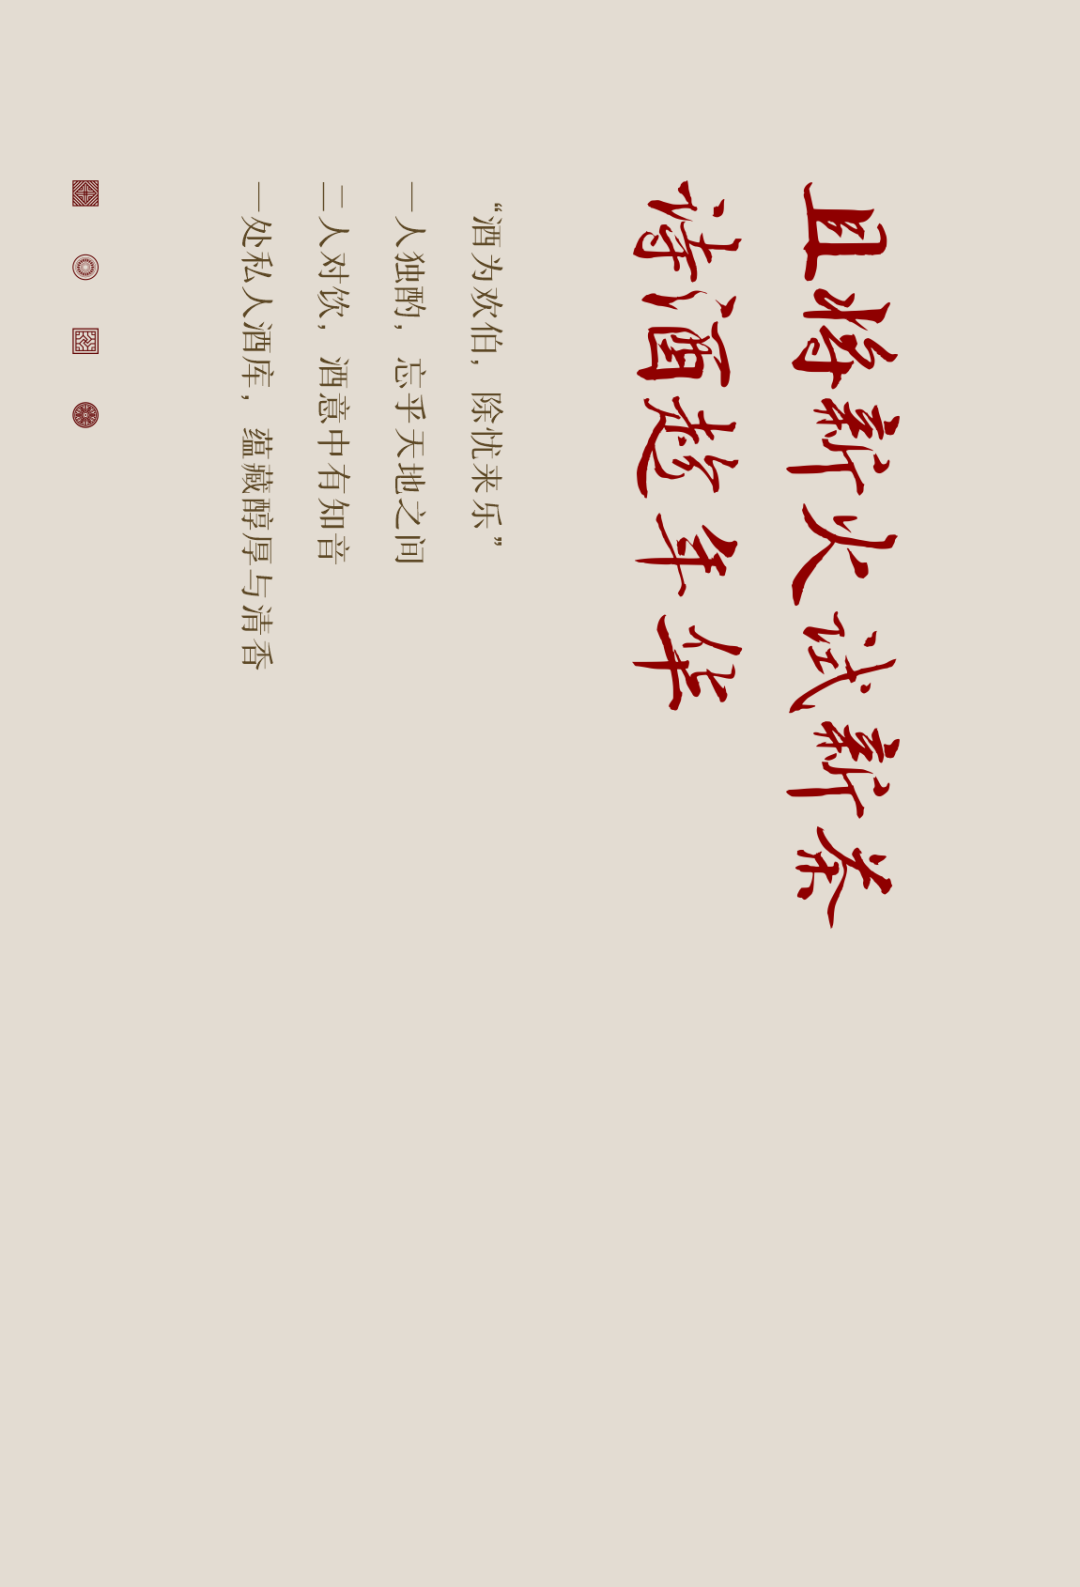 且将新火试新茶
诗酒趁年华
“酒为欢伯，除忧来乐”
一人独酌，忘乎天地之间
二人对饮，酒意中有知音
一处私人酒库，蕴藏醇厚与清香